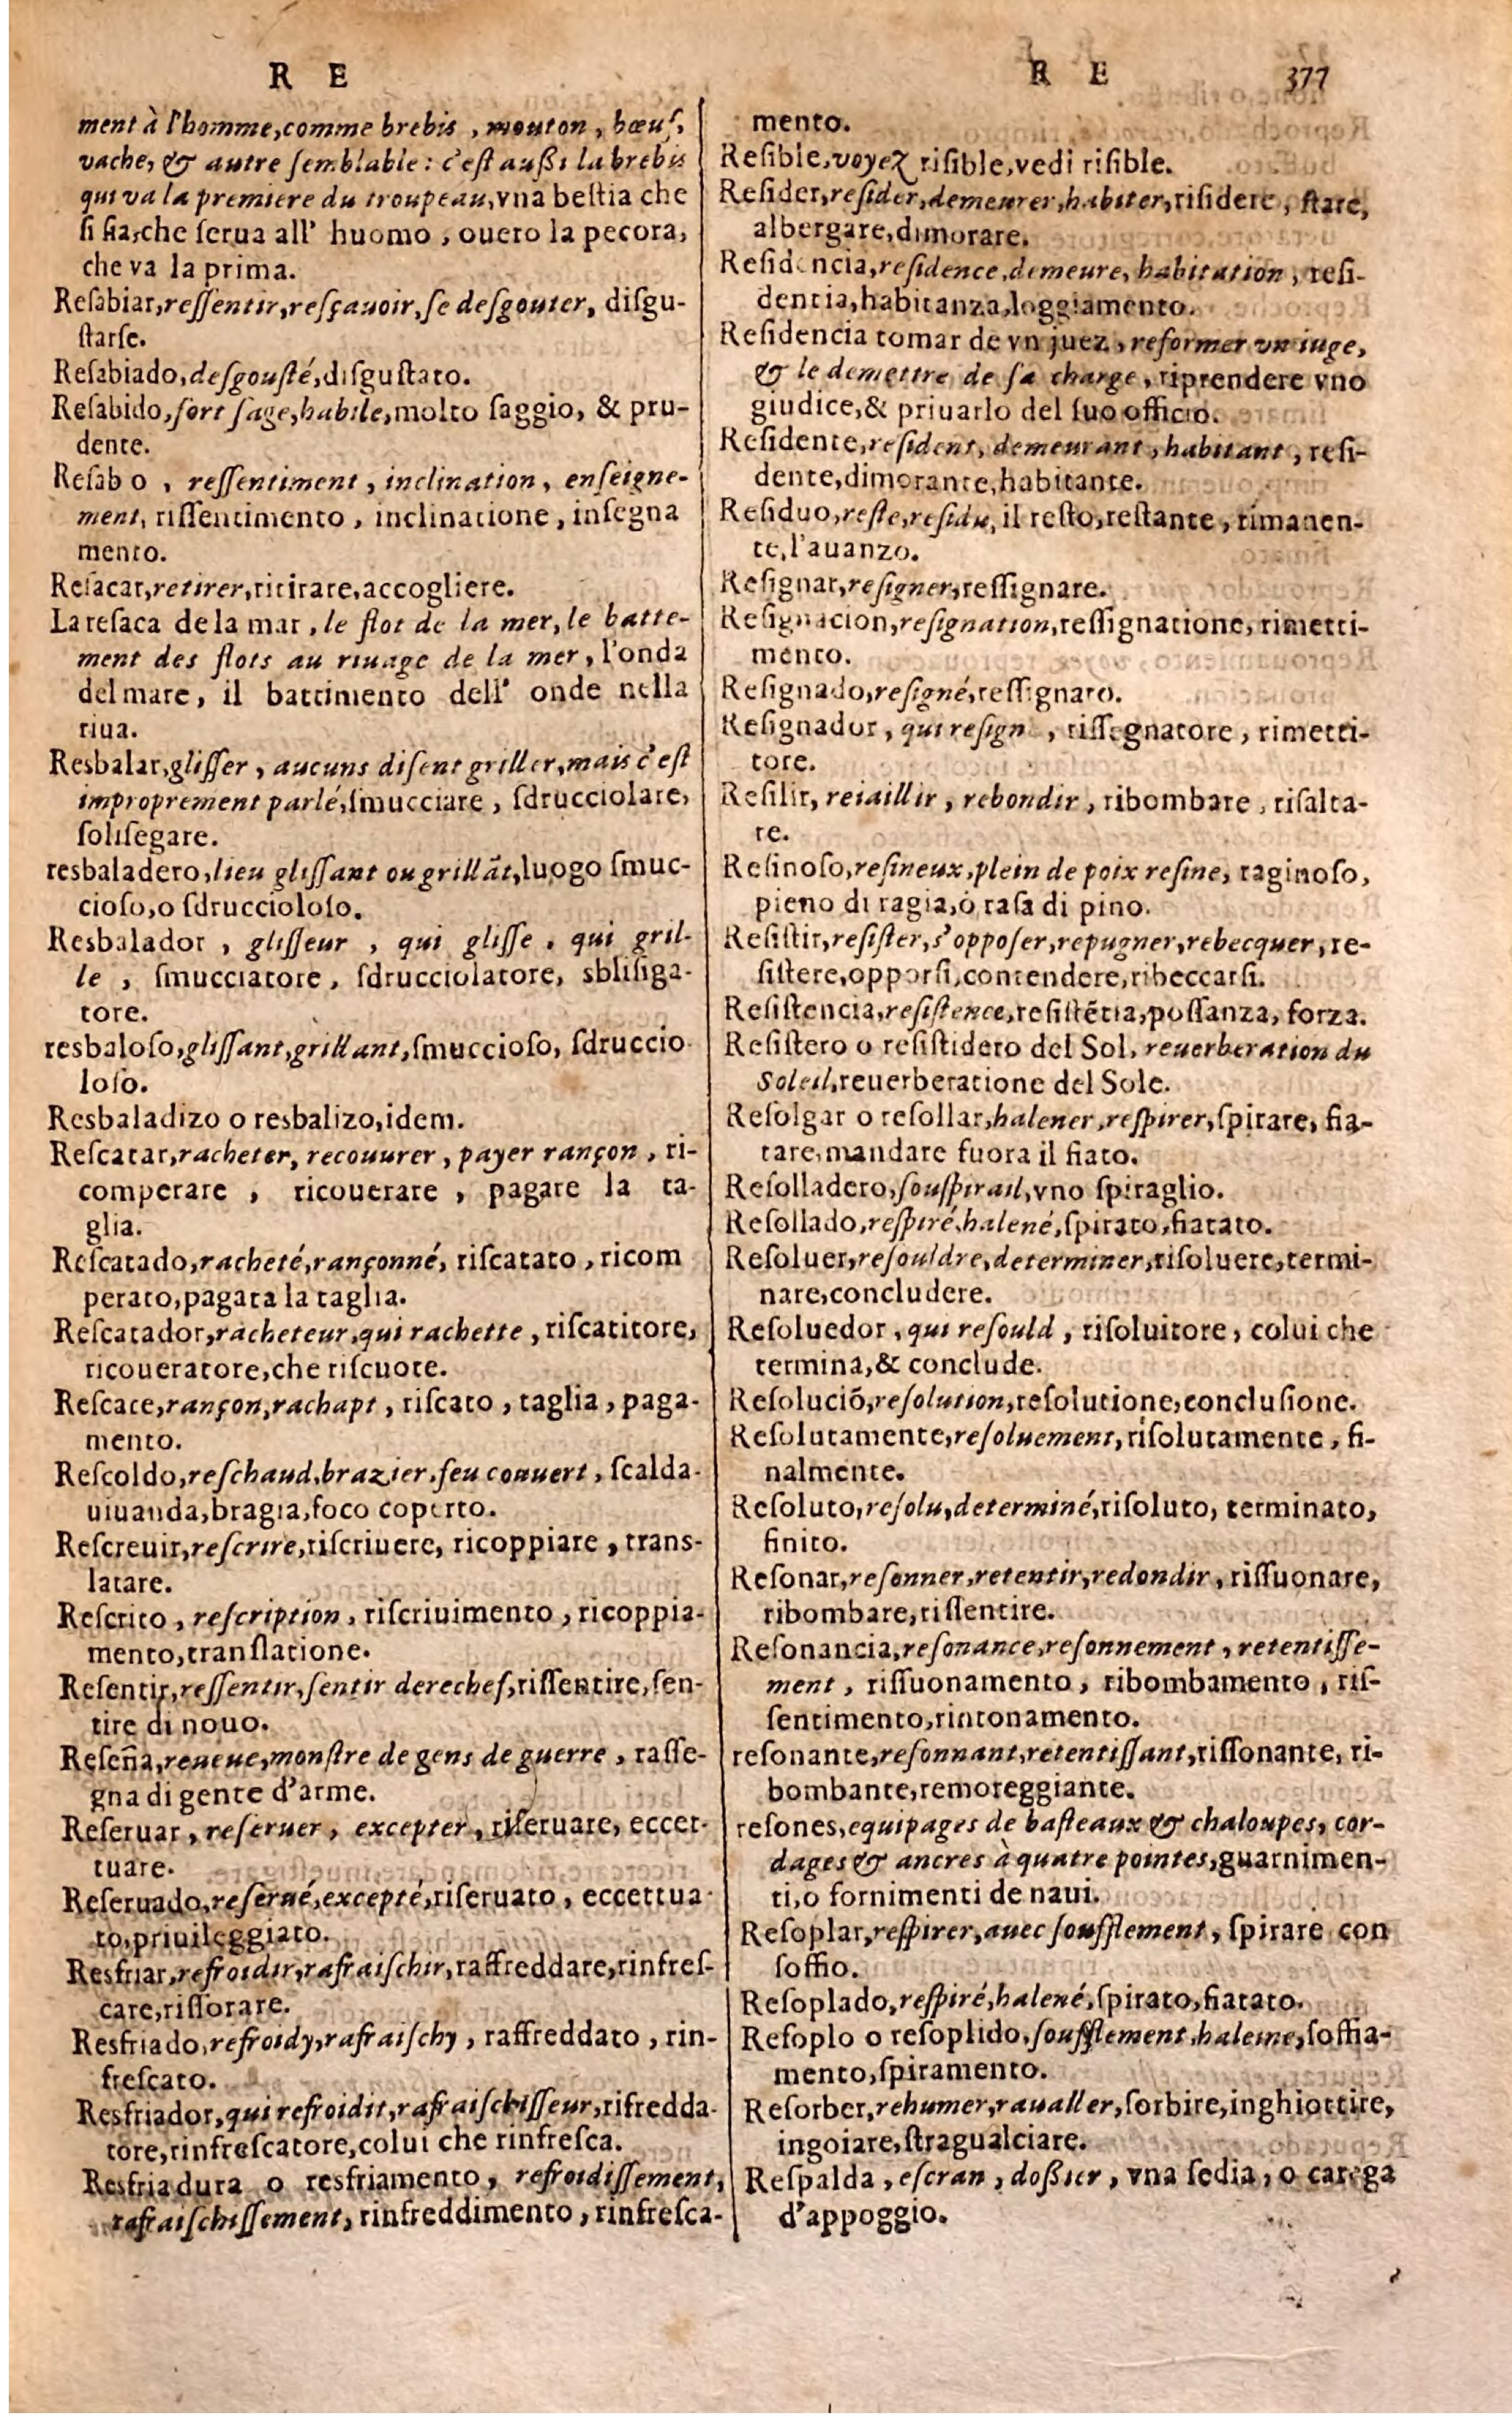 R E
ment à l'homme,comme brebis , mouton , bœuf,
vache, & autre ſemblable: c'eſt außi la brebis
qui va la premiere du troupeau,vna beſtia che
ſi fia,che ſerua all' huomo , ouero la pecora,
che va la prima.
Reſabiar,reſſentir,reſçauoir,ſe deſgouter, diſgu-
ſtarſe.
Reſabiado,deſgouſté,diſguſtato.
Reſabido,fort ſage,habile,molto ſaggio, & pru-
dente.
Reſab o , reſſentiment , inclination, enſeigne-
ment, riſſentimento , inclinatione , inſegna
mento.
Reſacar,retirer,ritirare,accogliere.
La reſaca de la mar , le flot de la mer, le batte-
ment des flots au riuage de la mer , l'onda
del mare , il battimento dell' onde nella
riua.
Resbalar,gliſſer , aucuns diſent griller,mais c'eſt
improprement parlé,ſmucciare , ſdrucciolare,
ſoliſegare.
resbaladero,lieu gliſſant ou grillãt,luogo ſmuc-
cioſo,o ſdruccioloſo.
Resbalador , gliſſeur , qui gliſſe , qui gril-
le , ſmucciatore , ſdrucciolatore, sbliſiga-
tore.
resbaloſo,gliſſant,grillant,ſmuccioſo, ſdruccio-
loſo.
Resbaladizo o resbalizo,idem.
Reſcatar,racheter, recouurer , payer rançon , ri-
comperare , ricouerare , pagare la ta-
glia.
Reſcatado,racheté,rançonné, riſcatato , ricom
perato,pagata la taglia.
Reſcatador,racheteur,qui rachette , riſcatitore,
ricoueratore,che riſcuote.
Reſcate,rançon,rachapt , riſcato , taglia , paga-
mento.
Reſcoldo,reſchaud,brazier,feu couuert , ſcalda-
uiuanda,bragia,foco coperto.
Reſcreuir,reſcrire,riſcriuere, ricoppiare , trans-
latare.
Reſcrito , reſcription , riſcriuimento , ricoppia-
mento,tranſlatione.
Reſentir,reſſentir,ſentir derechef,riſſentire,ſen-
tire di nouo.
Reſeña,reueue,monſtre de gens de guerre , raſſe-
gna di gente d'arme.
Reſeruar , reſeruer , excepter , riſeruare, eccet-
tuare.
Reſeruado,reſerué,excepté,riſeruato , eccettua-
to,priuileggiato.
Resfriar,refroidir,rafraiſchir,raffreddare,rinfreſ-
care,riſſorare.
Resfriado,refroidy,rafraiſchy , raffreddato , rin-
freſcato.
Resfriador,qui refroidit,rafraiſchiſſeur,rifredda-
tore,rinfreſcatore,colui che rinfreſca.
Resfriadura o resfriamento, refroidiſſement,
rafraiſchiſſement, rinfreddimento , rinfreſca-
R E 377
mento.
Reſible,voyez riſible,vedi riſible.
Reſider,reſider,demeurer,habiter,riſidere , ſtare,
albergare,dimorare.
Reſidencia,reſidence,demeure, habitation , reſi-
dentia,habitanza,loggiamento.
Reſidencia tomar de vn juez , reformer vn iuge,
& le demettre de ſa charge , riprendere vno
giudice,& priuarlo del ſuo officio.
Reſidente,reſident, demeurant , habitant , reſi-
dente,dimorante,habitante.
Reſiduo,reſte,reſidu, il reſto,reſtante , rimanen-
te,l'auanzo.
Reſignar,reſigner,reſſignare.
Reſignacion,reſignation,reſſignatione, rimetti-
mento.
Reſignado,reſigné,reſſignato.
Reſignador , qui reſign , riſſegnatore , rimetti-
tore.
Reſilir, reiaillir , rebondir , ribombare , riſalta-
re.
Reſinoſo,reſineux,plein de poix reſine, raginoſo,
pieno di ragia,ò raſa di pino.
Reſiſtir,reſiſter,s'oppoſer,repugner,rebecquer, re-
ſiſtere,opporſi,contendere,ribeccarſi.
Reſiſtencia,reſiſtence,reſiſtẽtia,poſſanza, forza.
Reſiſtero o reſiſtidero del Sol, reuerberation du
Soleil,reuerberatione del Sole.
Reſolgar o reſollar,halener,reſpirer,ſpirare, fia-
tare,mandare fuora il fiato.
Reſolladero,ſouſpirail,vno ſpiraglio.
Reſollado,reſpiré,halené,ſpirato,fiatato.
Reſoluer,reſouldre,determiner,riſoluere,termi-
nare,concludere.
Reſoluedor , qui reſould , riſoluitore , colui che
termina,& conclude.
Reſoluciõ,reſolution,reſolutione,concluſione.
Reſolutamente,reſoluement,riſolutamente , fi-
nalmente.
Reſoluto,reſolu,determiné,riſoluto, terminato,
finito.
Reſonar,reſonner,retentir,redondir , riſſuonare,
ribombare,riſſentire.
Reſonancia,reſonance,reſonnement , retentiſſe-
ment , riſſuonamento , ribombamento , riſ-
ſentimento,rintonamento.
reſonante,reſonnant,retentiſſant,riſſonante, ri-
bombante,remoreggiante.
reſones,equipages de baſteaux & chaloupes, cor-
dages & ancres à quatre pointes,guarnimen-
ti,o fornimenti de naui.
Reſoplar,reſpirer,auec ſoufflement , ſpirare con
ſoffio.
Reſoplado,reſpiré,halené,ſpirato,fiatato.
Reſoplo o reſoplido,ſoufflement,haleine,ſoffia-
mento,ſpiramento.
Reſorber,rehumer,raualler,ſorbire,inghiottire,
ingoiare,ſtragualciare.
Reſpalda , eſcran , doßier , vna ſedia , o carega
d'appoggio.